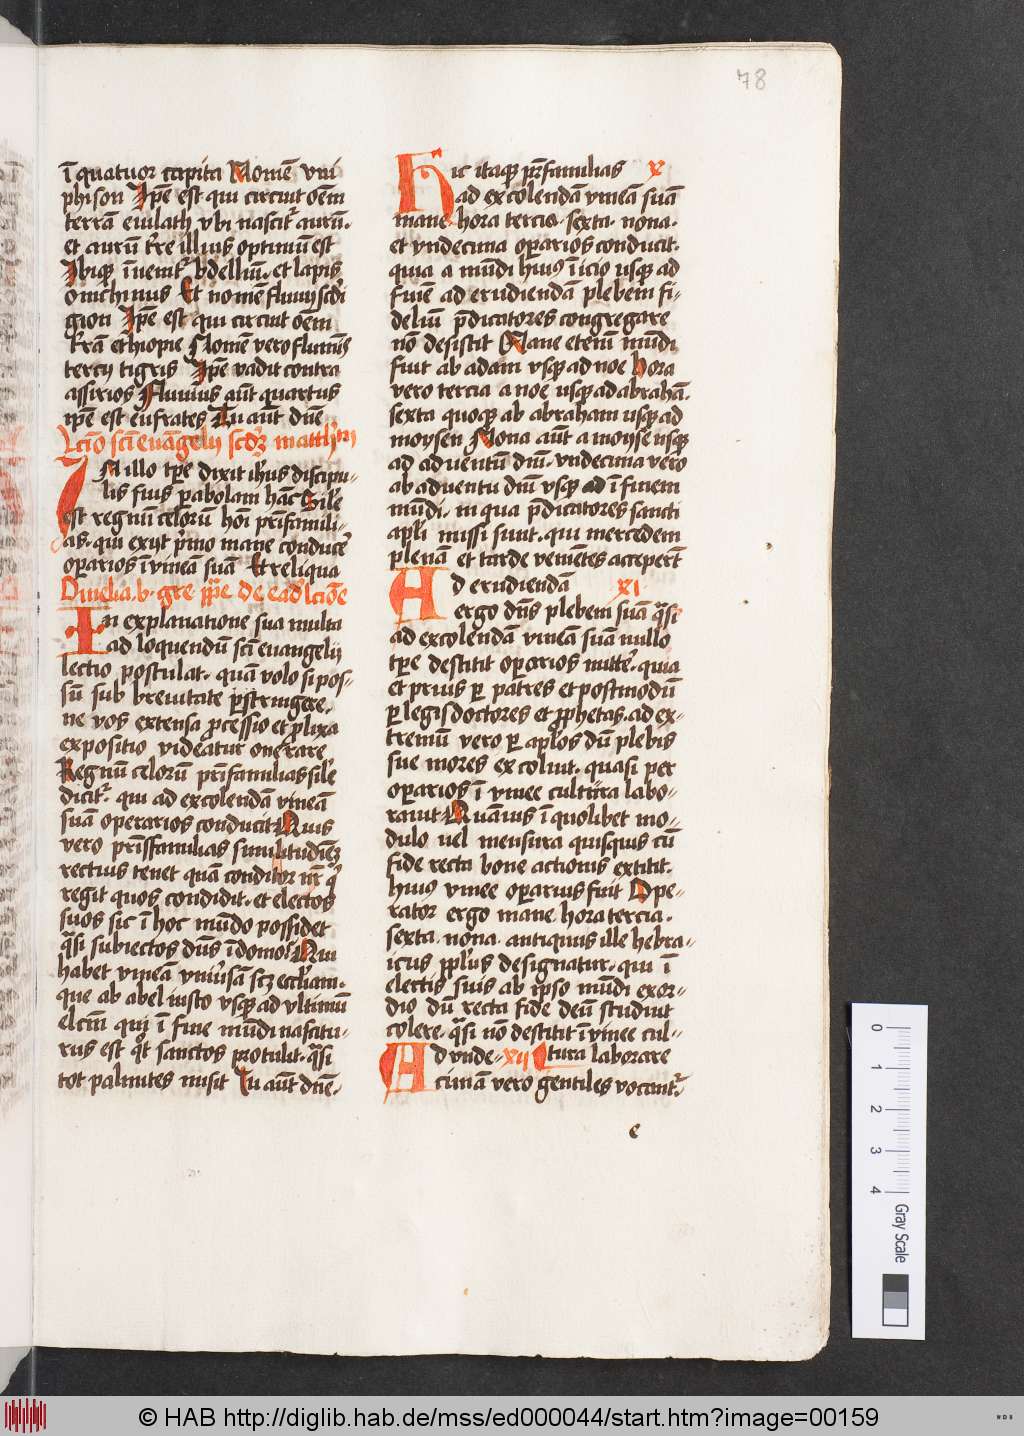 78
ī quatuor capita Nomē vni
phison Ip̄e est qui circuit oēm
terrā euilath vbi nascit᷑ aurū·
et aurū tr̄re illius optimū est
Ibiqꝫ īuenit᷑ bdelliū· et lapis
onichinus Et nomē fluuij scd̄i
gion Ip̄e est qui circuit oēm
tr̄ā ethiopie Nomē vero fluminis
tercij tigris Ip̄e vadit contra
assirios Fluuius aūt quartus
ip̄e est eufrates Tu aūt dn̄e
Lcīo scī euāgelij scd̄ꝫ mattheū
IN illo tp̄e dixit ih̄us discipu-
lis suis ꝑabolam hāc Sil̄e
est regnū celorū hōi pr̄ifamili-
as· qui exijt p̄mo mane conduce᷑
operarios ī vineā suā Et reliqua
Omelia· b· gre· pp̄e de eadē lcīoe
In explanatione sua multa
ad loquendū scī euangelij
lectio postulat· quā volo si pos-
sū sub breuitate ꝑstringere·
ne vos extensa ꝓcessio et ꝓlixa
expositio videatur onerare
Regnū celorū pr̄ifamilias sil̄e
dicit᷑· qui ad excolendā vineā
suā operarios conducit Quis
vero pr̄isfamilias similitudinē
rectius tenet quā conditor nr̄ q̄
regit quos condidit· et electos
suos sic ī hoc mūdo possidet
q̄si subiectos dn̄s ī domo Qui
habet vineā vniūsā scꝫ eccliam·
que ab abel iusto vsqꝫ ad vltimū
elcm̄ qui ī fine mūdi nascitu-
rus est q̄t sanctos protulit· q̄si
tot palmites misit Tu aūt dn̄e·
Hic itaqꝫ pr̄familias x
ad excolendā vineā suā
mane hora tercia· sexta· nona·
et vndecima oꝑarios conducit·
quia a mūdi huiꝰ īicio usqꝫ ad
finē ad erudiendā plebem fi-
deliū p̄dicatores congregare
nō desistit Mane etenī mūdi
fuit ab adam vsqꝫ ad noe hora
vero tercia a noe usqꝫ ad abrahā·
sexta quoqꝫ ab abraham usqꝫ ad
moysen Nona aūt a moyse usqꝫ
ad aduentū dnī· vndecima vero
ab aduentu dnī vsqꝫ ad ī finem
mūdi· in qua p̄dicatores sancti
apl̄i missi sunt· qui mercedem
plenā et tarde venientes acceperūt
Ad erudiendā xi
ergo dn̄s plebem suā q̄si
ad excolendā vineā suā nullo
tp̄e destitit oꝑarios mitte᷑· quia
et prius ꝑ patres et postmodū
ꝑ legis doctores et ꝓphetas· ad ex-
tremū vero ꝑ apl̄os dū plebis
sue mores excoluit· quasi per
oꝑarios ī vinee cultura labo-
rauit Quāuis ī quolibet mo-
dulo uel mensura quisquis cū
fide recta bone actionis extitit·
huiꝰ vinee oꝑarius fuit Ope-
rator ergo mane hora tercia·
sexta· nona· antiquus ille hebra-
icus pp̄lus designatur· qui ī
electis suis ab ip̄so mūdi exor-
dio dū recta fide deū studuit
colere· q̄si nō destitit ī vinee cul-
Ad vnde- xij tura laborare
cimā vero gentiles vocant᷑·
e
0 1 2 3 4
Gray Scale
© HAB http://diglib.hab.de/mss/ed000044/start.htm?image=00159